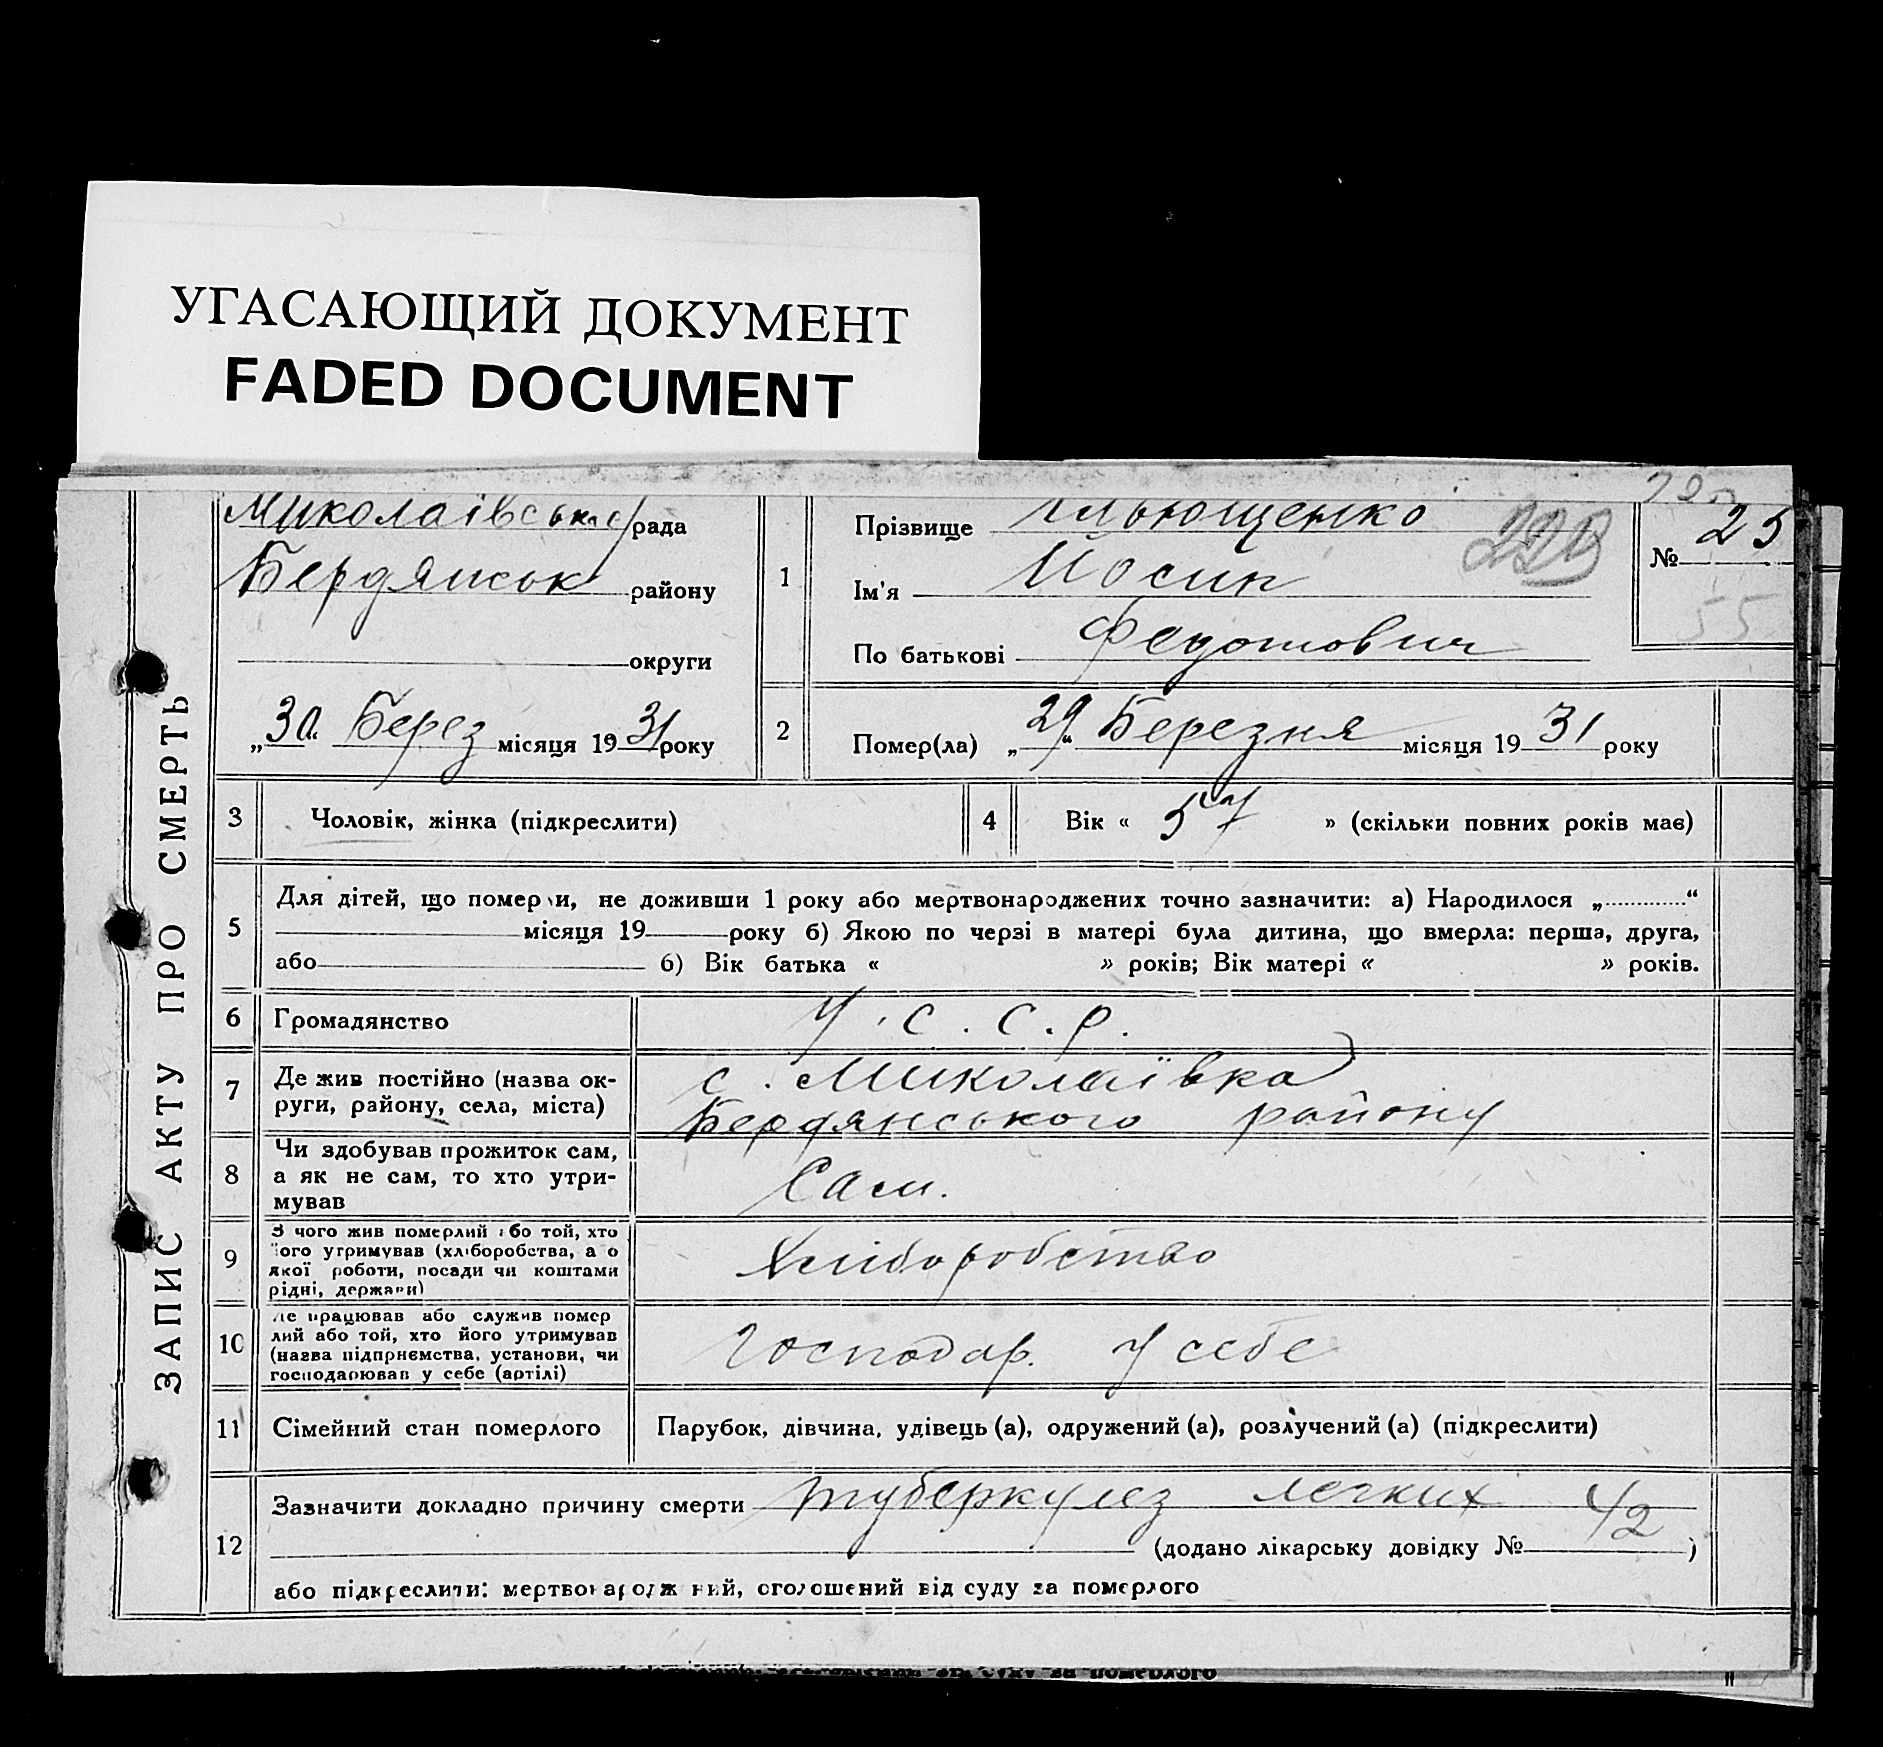 УГАСАЮЩИЙ ДОКУМЕНТ
FADED DOCUMENT
ЗАПИС АКТУ ПРО СМЕРТЬ
Миколаївська рада
Бердянськ району
округи
„30“ Берез місяця 1931 року
1
Прізвище Ільющенко
Ім'я Йосип
По батькові Федотович
220
№ 25
55
2
Помер(ла) „29“ Березня місяця 1931 року
3 Чоловік, жінка (підкреслити)
4 Вік « 57 » (скільки повних років має)
5
Для дітей, що померли, не доживши 1 року або мертвонароджених точно зазначити: а) Народилося „ “
місяця 19 року б) Якою по черзі в матері була дитина, що вмерла: перша, друга,
або 6) Вік батька « » років; Вік матері « » років.
6 Громадянство У.С.С.Р.
7
Де жив постійно (назва ок-
руги, району, села, міста)
с. Миколаївка
Бердянського району
8
Чи здобував прожиток сам,
а як не сам, то хто утри-
мував
Сам.
9
З чого жив померлий або той, хто
його утримував (хліборобства, а о
якої роботи, посади чи коштами
рідні, держави)
Хліборобство
10
Де працював або служив помер
лий або той, хто його утримував
(назва підприємства, установи, чи
господарював у себе (артілі)
Господар. у себе
11 Сімейний стан померлого
Парубок, дівчина, удівець (а), одружений (а), розлучений (а) (підкреслити)
12
Зазначити докладно причину смерти туберкулез легких
(додано лікарську довідку № 42)
або підкреслити: мертвонароджений, оголошений від суду за померлого